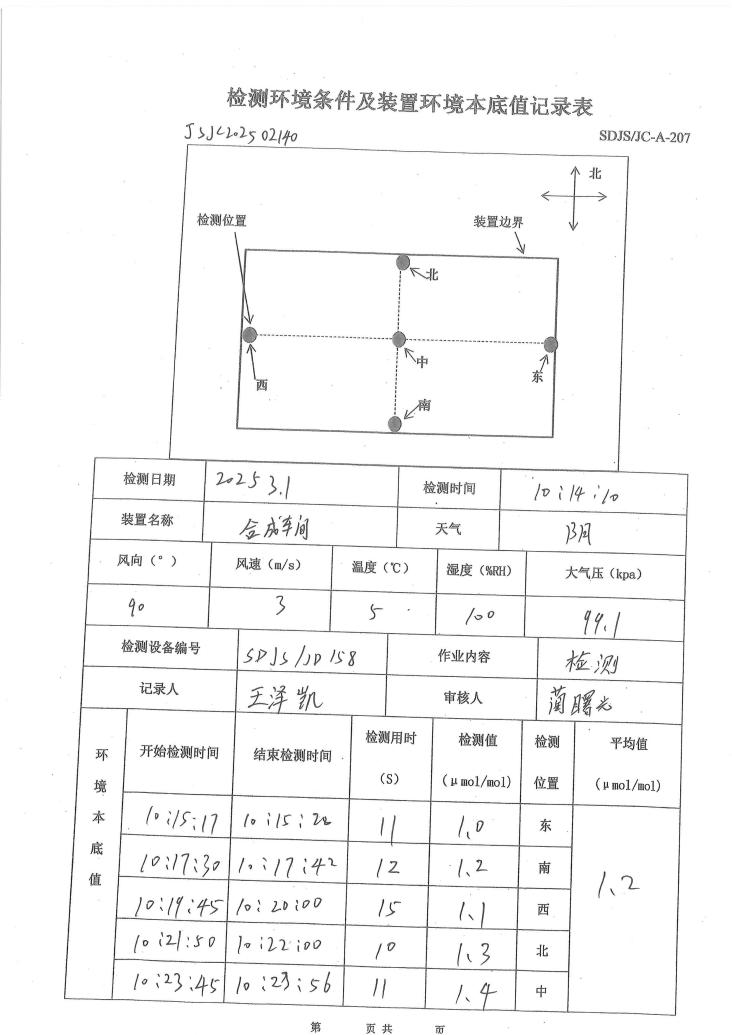 检测环境条件及装置环境本底值记录表
JSJC202502140 SDJS/JC-A-207
北
检测位置 装置边界
北
中
西 东
南
检测日期 2025 3.1 检测时间 10:14:10
装置名称 合成车间 天气 阴
风向（°） 风速（m/s） 温度（℃） 湿度（%RH） 大气压（kpa）
90 3 5 100 99.1
检测设备编号 SDJS/JD 158 作业内容 检测
记录人 王泽凯 审核人 蔺曙光
环境本底值 开始检测时间 结束检测时间 检测用时（S） 检测值（μmol/mol） 检测位置 平均值（μmol/mol）
10:15:17 10:15:28 11 1.0 东
10:17:30 10:17:42 12 1.2 南
10:19:45 10:20:00 15 1.1 西 1.2
10:21:50 10:22:00 10 1.3 北
10:23:45 10:23:56 11 1.4 中
第 页 共 页